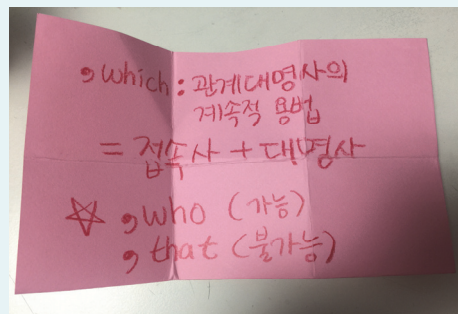 , which : 관계대명사의
계속적 용법
= 접속사 + 대명사
☆ , who (가능)
, that (불가능)